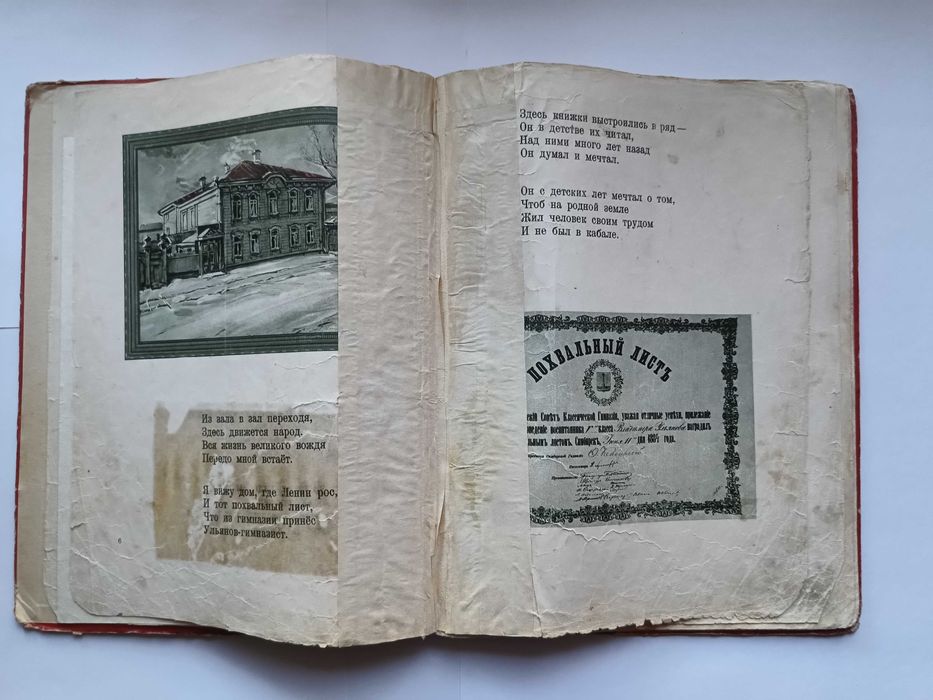 Из зала в зал переходя,
Здесь движется народ.
Вся жизнь великого вождя
Передо мной встаёт.
Я вижу дом, где Ленин рос,
И тот похвальный лист,
Что из гимназии принёс
Ульянов-гимназист.
6
Здесь книжки выстроились в ряд—
Он в детстве их читал,
Над ними много лет назад
Он думал и мечтал.
Он с детских лет мечтал о том,
Чтоб на родной земле
Жил человек своим трудом
И не был в кабале.
ПОХВАЛЬНЫЙ ЛИСТЪ
Совѣтъ Классической Гимназіи, уважая отличные успѣхи, прилежаніе
воспитанника класса наградилъ
листомъ. Симбирскъ, дня года.